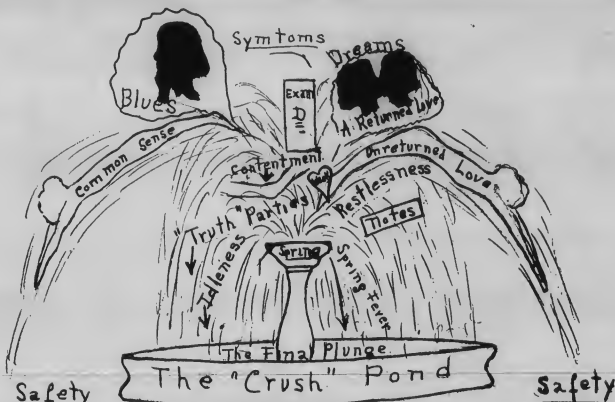 Symtoms
Dreams
Blues
Exam
D
A Returned Love
Common Sense
Contentment
Unreturned Love
"Truth" Parties
Restlessness
Notes
Idleness
Spring
Spring Fever
The Final Plunge
The "Crush" Pond
Safety
Safety